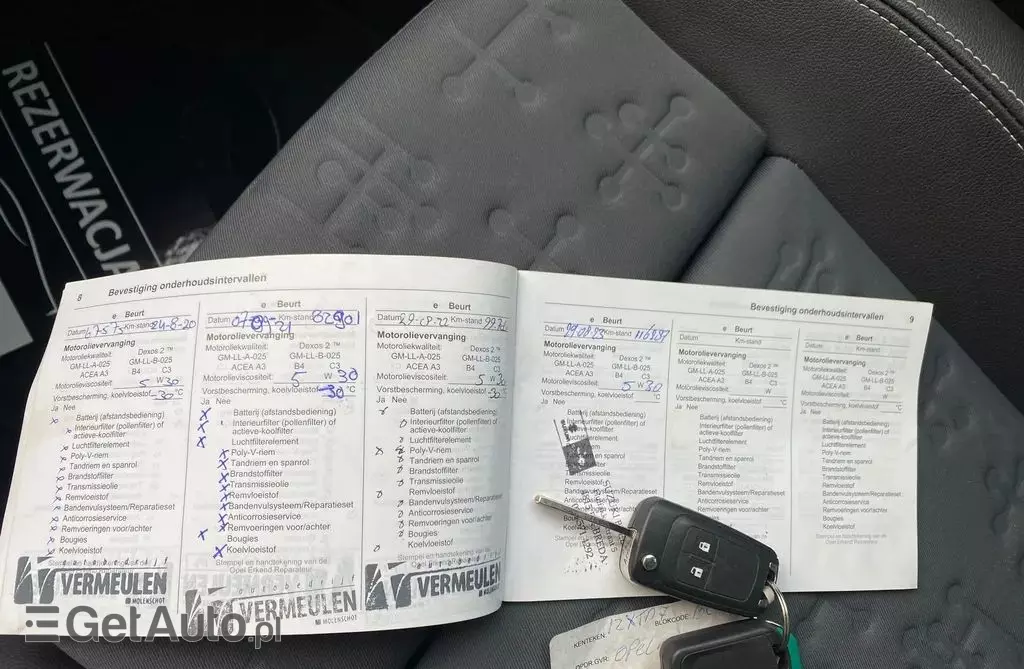 REZERWACJA
8 Bevestiging onderhoudsintervallen
e Beurt
Datum 67575 Km-stand 24-8-20
Motorolievervanging
Motoroliekwaliteit: Dexos 2 ™
GM-LL-A-025 GM-LL-B-025
ACEA A3 B4 C3
Motorolieviscositeit: 5 W 30
Vorstbescherming, koelvloeistof -30 °C
Ja Nee
Batterij (afstandsbediening)
Interieurfilter (pollenfilter) of
actieve-koolfilter
Luchtfilterelement
Poly-V-riem
Tandriem en spanrol
Brandstoffilter
Transmissieolie
Remvloeistof
Bandenvulsysteem/Reparatieset
Anticorrosieservice
Remvoeringen voor/achter
Bougies
Koelvloeistof
VERMEULEN
MOLENSCHOT
e Beurt
Datum Km-stand
Motorolievervanging
Motoroliekwaliteit: Dexos 2 ™
GM-LL-A-025 GM-LL-B-025
ACEA A3 B4 C3
Motorolieviscositeit: 5 W 30
Vorstbescherming, koelvloeistof -30 °C
Ja Nee
Batterij (afstandsbediening)
Interieurfilter (pollenfilter) of
actieve-koolfilter
Luchtfilterelement
Poly-V-riem
Tandriem en spanrol
Brandstoffilter
Transmissieolie
Remvloeistof
Bandenvulsysteem/Reparatieset
Anticorrosieservice
Remvoeringen voor/achter
Bougies
Koelvloeistof
Stempel en handtekening van de
Opel Erkend Reparateur
autobedrijf
VERMEULEN
MOLENSCHOT
e Beurt
Datum 29-08-22 Km-stand
Motorolievervanging
Motoroliekwaliteit: Dexos 2 ™
GM-LL-A-025 GM-LL-B-025
ACEA A3 B4 C3
Motorolieviscositeit: 5 W 30
Vorstbescherming, koelvloeistof -30 °C
Ja Nee
Batterij (afstandsbediening)
Interieurfilter (pollenfilter) of
actieve-koolfilter
Luchtfilterelement
Poly-V-riem
Tandriem en spanrol
Brandstoffilter
Transmissieolie
Remvloeistof
Bandenvulsysteem/Reparatieset
Anticorrosieservice
Remvoeringen voor/achter
Bougies
Koelvloeistof
Stempel en handtekening van de
Opel Erkend Reparateur
VERMEULEN
MOLENSCHOT
Bevestiging onderhoudsintervallen 9
e Beurt
Datum 29.08.23 Km-stand
Motorolievervanging
Motoroliekwaliteit: Dexos 2 ™
GM-LL-A-025 GM-LL-B-025
ACEA A3 B4 C3
Motorolieviscositeit: 5 W 30
Vorstbescherming, koelvloeistof °C
Ja Nee
Batterij (afstandsbediening)
Interieurfilter (pollenfilter) of
actieve-koolfilter
Luchtfilterelement
Poly-V-riem
Tandriem en spanrol
Brandstoffilter
Transmissieolie
Remvloeistof
Bandenvulsysteem/Reparatieset
Anticorrosieservice
Remvoeringen voor/achter
Bougies
e Beurt
Datum Km-stand
Motorolievervanging
Motoroliekwaliteit: Dexos 2 ™
GM-LL-A-025 GM-LL-B-025
ACEA A3 B4 C3
Motorolieviscositeit: W
Vorstbescherming, koelvloeistof °C
Ja Nee
Batterij (afstandsbediening)
Interieurfilter (pollenfilter) of
actieve-koolfilter
Luchtfilterelement
Poly-V-riem
Tandriem en spanrol
Brandstoffilter
Transmissieolie
Remvloeistof
Bandenvulsysteem/Reparatieset
e Beurt
Datum Km-stand
Motorolievervanging
Motoroliekwaliteit: Dexos 2 ™
GM-LL-A-025 GM-LL-B-025
ACEA A3 B4 C3
Motorolieviscositeit: W
Vorstbescherming, koelvloeistof °C
Ja Nee
Batterij (afstandsbediening)
Interieurfilter (pollenfilter) of
actieve-koolfilter
Luchtfilterelement
Poly-V-riem
Tandriem en spanrol
Brandstoffilter
Transmissieolie
Remvloeistof
Bandenvulsysteem/Reparatieset
Anticorrosieservice
Remvoeringen voor/achter
Bougies
Koelvloeistof
Stempel en handtekening van de
Opel Erkend Reparateur
KENTEKEN: BLOKCODE:
OPDR.GVR: OPEL
GetAuto.pl